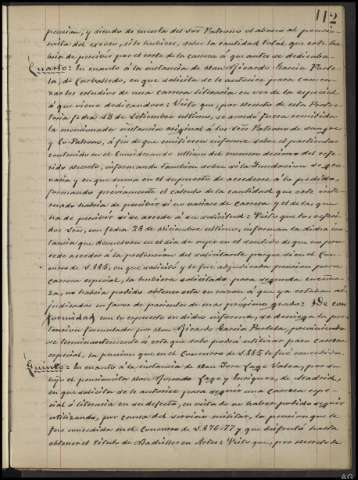 112
pensión, y siendo de cuenta del Sor Patrono el abono al pensio-
nista del exceso, si lo hubiere, sobre la cantidad total que este ha-
bía de percibir por el resto de la carrera á que antes se dedicaba.
Cuarto: En cuanto á la instancia de Don Ricardo García Porte-
la, de Carballedo, en que solicita se le autorice para comen-
zar los estudios de una carrera literaria en vez de la especial
á que viene dedicandose: Visto que, por decreto de esta Recto-
ria fecha 23 de Setiembre último, se acordó fuera remitida
la mencionada instancia original á los Sres Patrono de sangre
y Co-Patrono, á fin de que emitiesen informe sobre el particular
contenido en el Considerando último del número décimo del refe-
rido decreto, informando tambien sobre si la Fundación se gra-
varía y en que suma en el supuesto de accederse á lo pedido,
formando previamente el cálculo de la cantidad que este inte-
resado habría de percibir si no variase de carrera y el de la que
ha de percibir si se accede á su solicitud: Visto que los referi-
dos Sres, con fecha 28 de diciembre último, informan la dicha ins-
tancia que devuelven en el día de ayer en el sentido de que no pro-
cede acceder á la pretension del solicitante porque si en el Con-
curso de 1.885, en que solicitó y le fue adjudicada pension para
carrera especial, la hubiera solicitado para segunda enseñan-
za, no habría podido obtener esta en razon á que ya estaban ad-
judicadas en favor de parientes de mas próximo grado: De con
formidad con lo expuesto en dicho informe, se desestima la pre-
tension formulada por Don Ricardo García Portela, previniendo-
se terminantemente á este que solo podrá utilizar para carrera
especial, la pension que en el Concurso de 1.885 le fué concedida.
Quinto: En cuanto á la instancia de Don José Lage Valea, por su
hijo el pensionista Don Amado Lage y Enriquez, de Madrid,
en que solicita se le autorice para seguir una carrera espe-
cial ó literaria en su defecto, en vista de no haber podido seguir
utilizando, por causa del servicio militar, la pension que le
fué concedida en el Concurso de 1.876-77 y que disfrutó hasta
obtener el título de Bachiller en Artes: Visto que, por decreto de